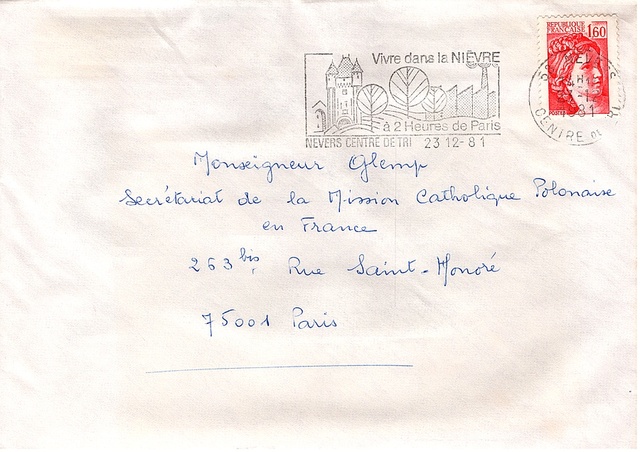 RÉPUBLIQUE FRANÇAISE 1,60
Vivre dans la NIÈVRE
à 2 Heures de Paris
NEVERS CENTRE DE TRI 23 12-81
Monseigneur Glemp
Secrétariat de la Mission Catholique Polonaise
en France
263 bis Rue Saint-Honoré
75001 Paris